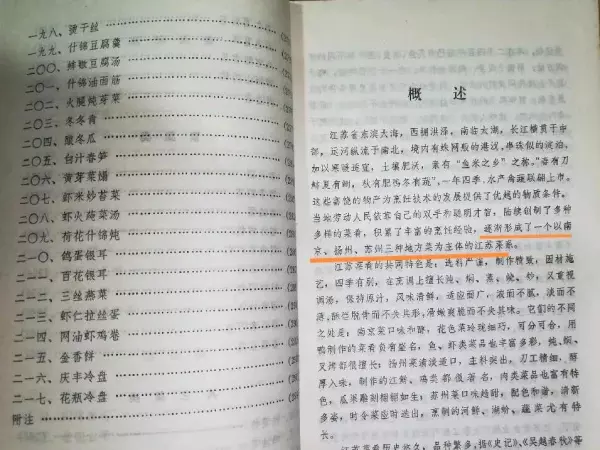 一九八、烫干丝
一九九、什锦豆腐羹
二〇〇、辣败豆腐汤
二〇一、什锦油面筋
二〇二、火腿炖芽菜
二〇三、冬冬青
二〇四、酿冬瓜
二〇五、白汁春笋
二〇六、黄芽菜塌
二〇七、虾米炒苔菜
二〇八、虾火莼菜汤
二〇九、荷花什锦包
二一〇、鸽蛋银耳
二一一、百花银耳
二一二、三丝燕菜
二一三、虾仁拉丝蛋
二一四、网油虾鸡卷
二一五、金香饼
二一六、庆丰冷盘
二一七、花瓶冷盘
附注
概述
江苏省东滨大海，西拥洪泽，南临太湖，长江横贯于中
部，运河纵流于南北，境内有蛛网般的港汊，串珠似的淀泊，
加以寒暖适宜，土壤肥沃，素有“鱼米之乡”之称。“春有刀
鲚夏有鲥，秋有肥鸭冬有蔬”，一年四季，水产禽蔬联翩上市。
这些富饶的物产为烹饪技术的发展提供了优越的物质条件。
当地劳动人民依靠自己的双手和聪明才智，陆续创制了多种
多样的菜肴，积累了丰富的烹饪经验，逐渐形成了一个以南
京、扬州、苏州三种地方菜为主体的江苏菜系。
江苏菜肴的共同特色是：选料严谨，制作精致，因材施
艺，四季有别，在烹调上擅长炖、焖、蒸、烧、炒，又重视
调汤，保持原汁，风味清鲜，适应面广，浓而不腻，淡而不
薄，酥烂脱骨而不失其形，滑嫩爽脆而不失其味。它们的不同
之处是：南京菜口味和醇，花色菜玲珑细巧，可分可合，用
鸭制作的菜肴负有盛名，鱼、虾类菜品也丰富多彩，炖、焖、
叉烤都很擅长；扬州菜清淡适口，主料突出，刀工精细，醇
厚入味，制作的江鲜、鸡类都很著名，肉类菜品也富有特
色，瓜果雕刻栩栩如生；苏州菜口味趋甜，配色和谐，清新
多姿，时令菜应时迭出，烹制的河鲜、湖蚧、蔬菜尤有特
长。
江苏菜肴历史悠久，品种繁多，据《史记》、《吴越春秋》等